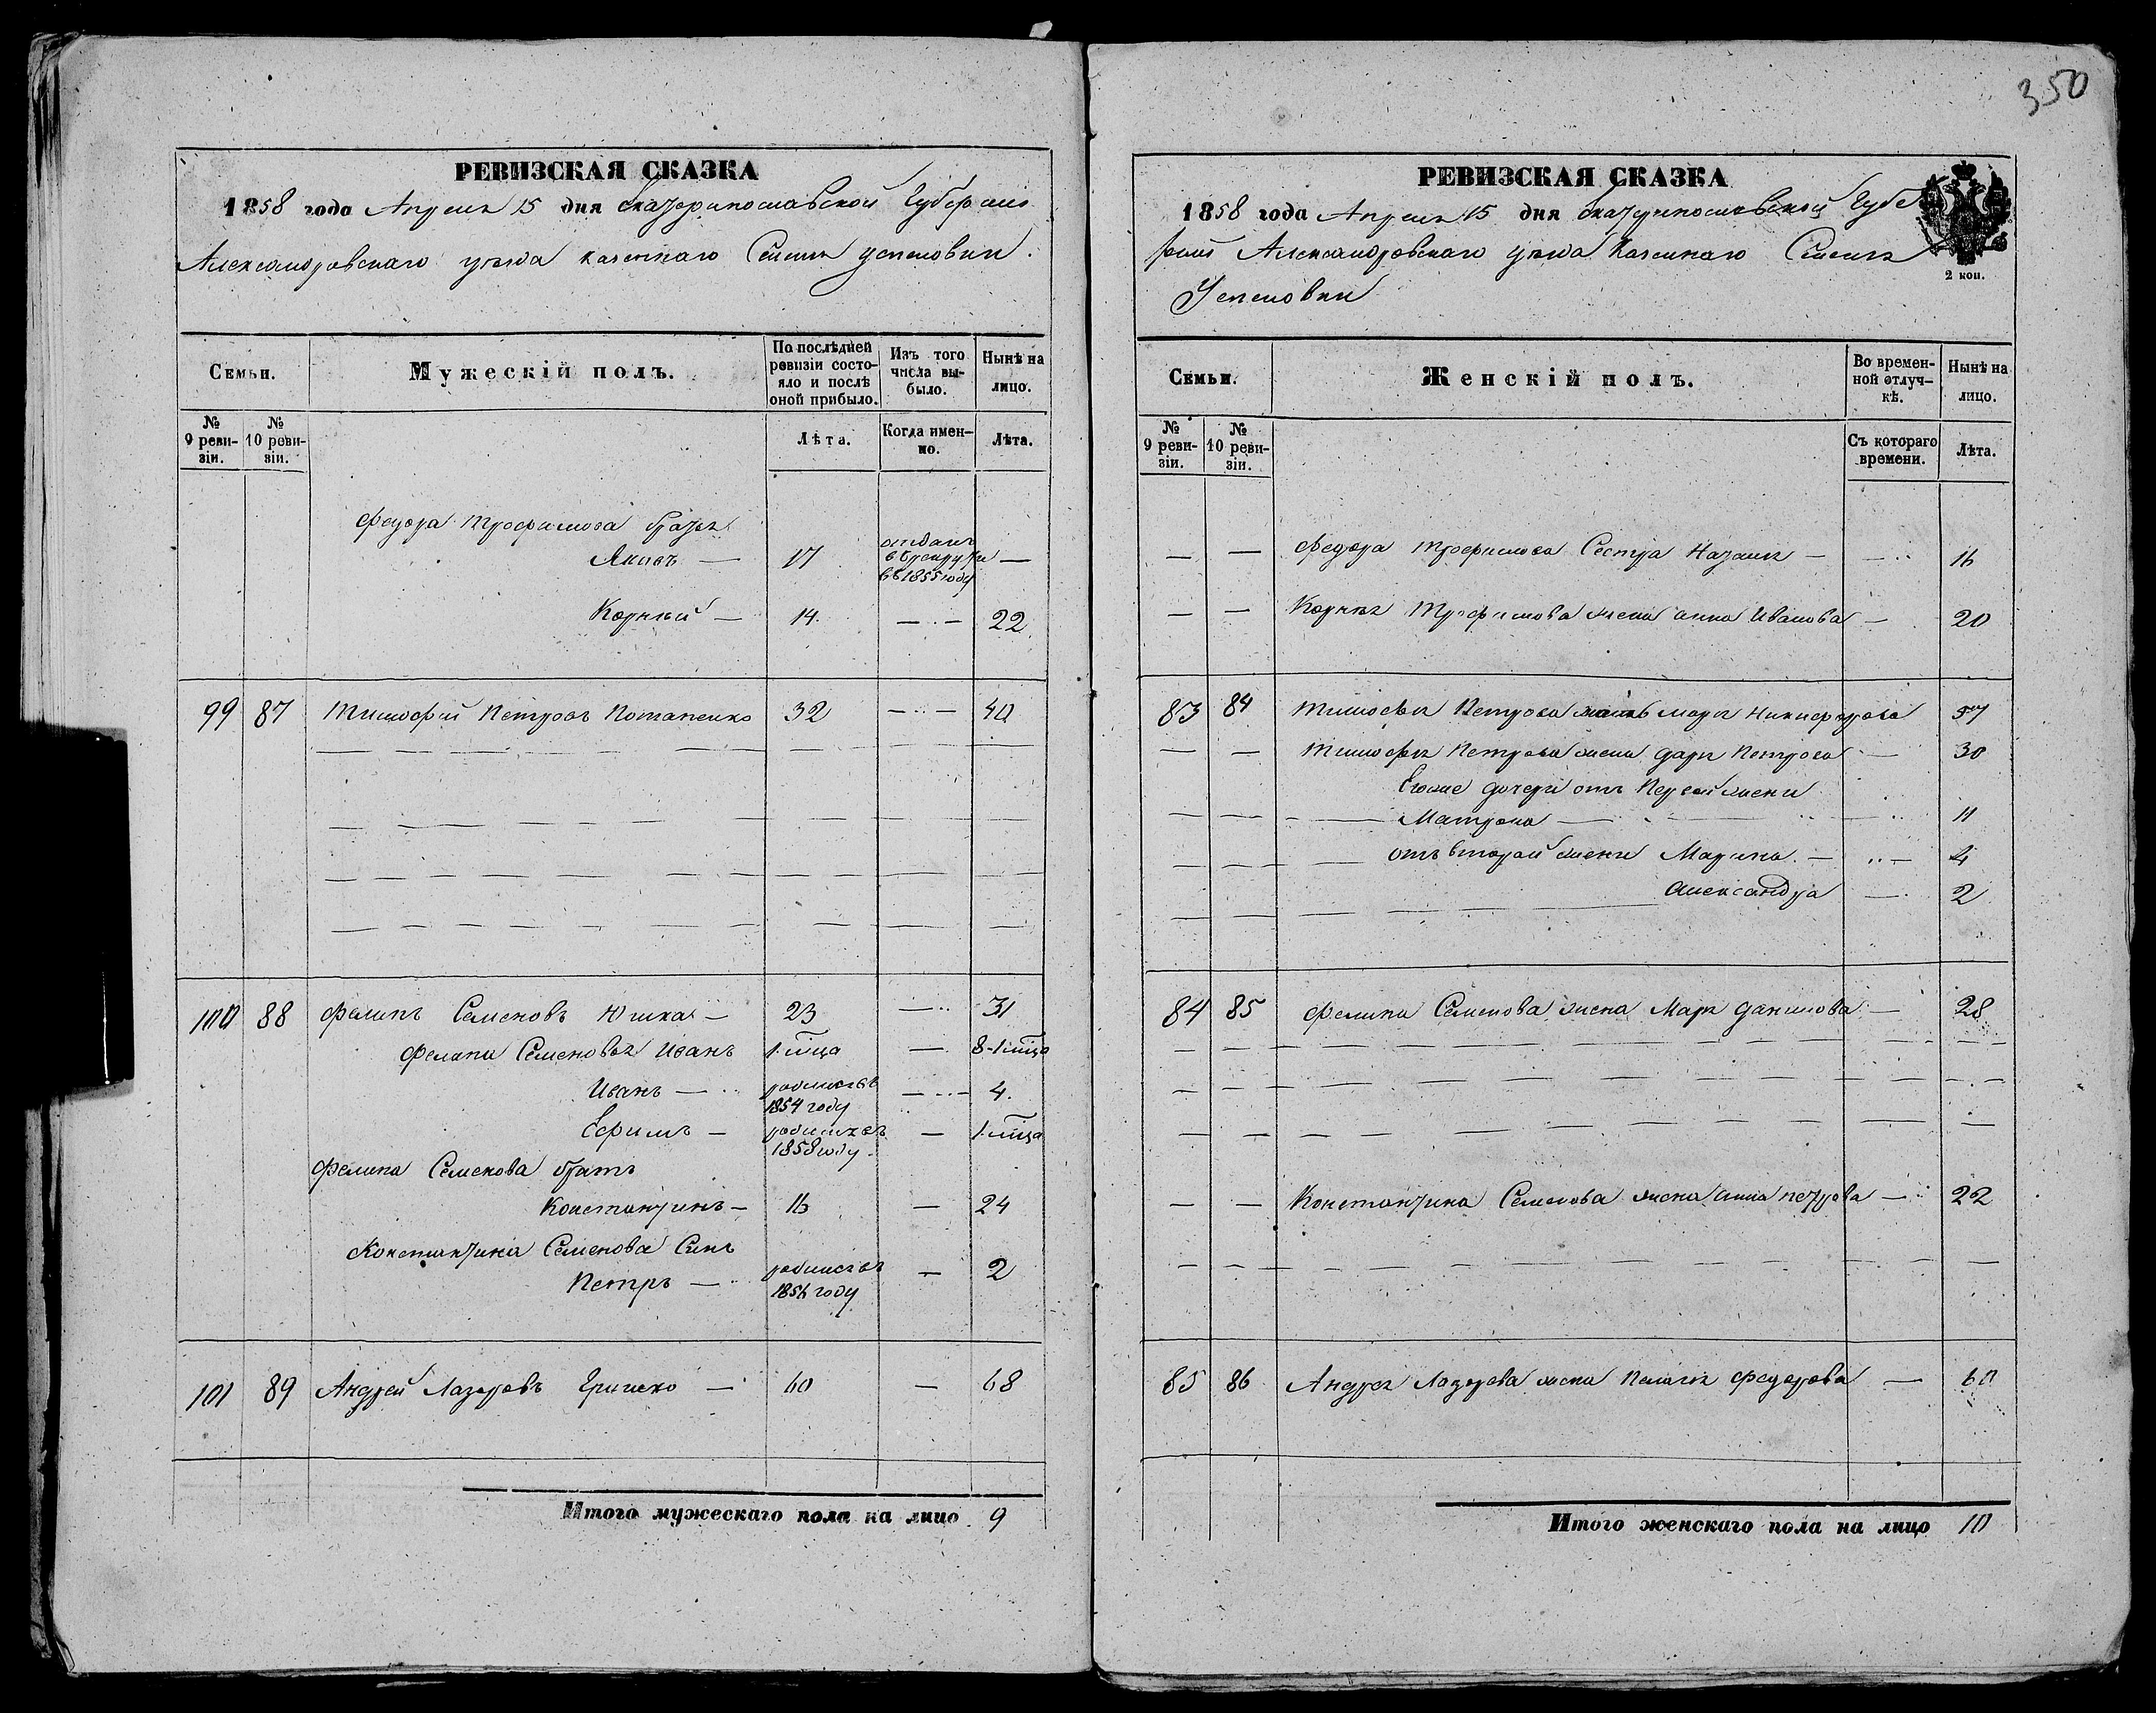 350
РЕВИЗСКАЯ СКАЗКА
1858 года Апреля 15 дня Екатеринославской Губернии
Александровскаго уезда казеннаго Селения Успеновки.
Семьи.
Мужескій полъ.
По послѣдней ревизіи состояло и послѣ оной прибыло.
Изъ того числа выбыло.
Нынѣ на лицо.
№ 9 ревизіи.
№ 10 ревизіи.
Лѣта.
Когда именно.
Лѣта.
Федора Трофимова братья
Яковъ — 17 отданъ в рекруты в 1855 году —
Корней — 14. — 22
99 87 Тимофей Петровъ Потапенко 32 — 40
100 88 Филипъ Семеновъ Юшка — 23 — 31
Филипа Семеновы Иванъ 1. мца — 8-1 мца
Иванъ — родился въ 1854 году — 4.
Ефимъ — родился въ 1858 году — 1 мца
Филипа Семенова братъ
Константинъ — 16 — 24
Константина Семенова Сынъ
Петръ — родился въ 1856 году — 2
101 89 Андрей Лазоревъ — 60 — 68
Итого мужескаго пола на лицо 9
РЕВИЗСКАЯ СКАЗКА
1858 года Апреля 15 дня Екатеринославской Губе
рнии Александровскаго уезда Казеннаго Селения
Успеновки
2 коп.
Семьи.
Женскій полъ.
Во временной отлучкѣ.
Нынѣ на лицо.
№ 9 ревизіи.
№ 10 ревизіи.
Съ котораго времени.
Лѣта.
— — Федора Трофимова Сестра — 16
— — Корнея Трофимова жена Анна Иванова — 20
83 84 Тимофея Петрова мать Марья Никифорова 57
— — Тимофея Петрова жена Дарья Петрова — 30
Егоже дочери от Первой жени
— — Матрона — 11
— — отъ второй жени Марина — 4
— — Александра — 2
84 85 Филипа Семенова жена Марья Данилова — 28
— — Константина Семенова жена Анна Петрова — 22
85 86 Андрея Лазорева жена Пелагея Федорова — 60
Итого женскаго пола на лицо 10